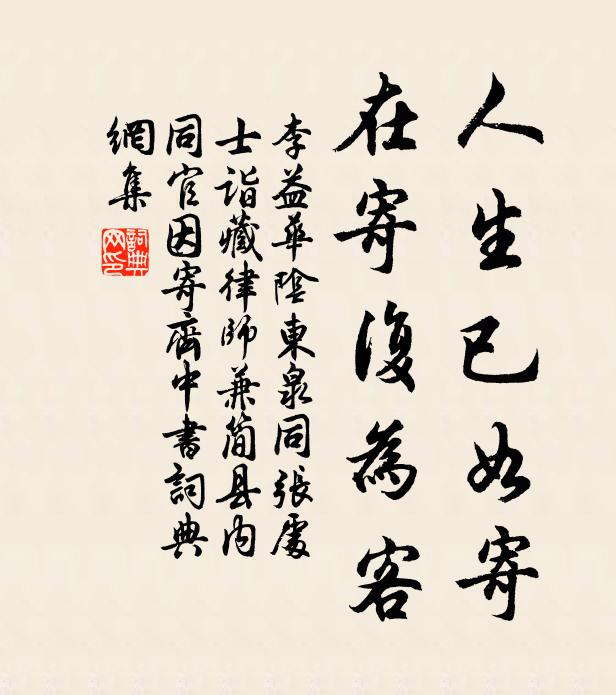 人生已如寄
在寄復為客
李益華陰東泉同張處
士詣藏律師兼简县内
同官因寄齊中書詞典
網集
詞典
网印